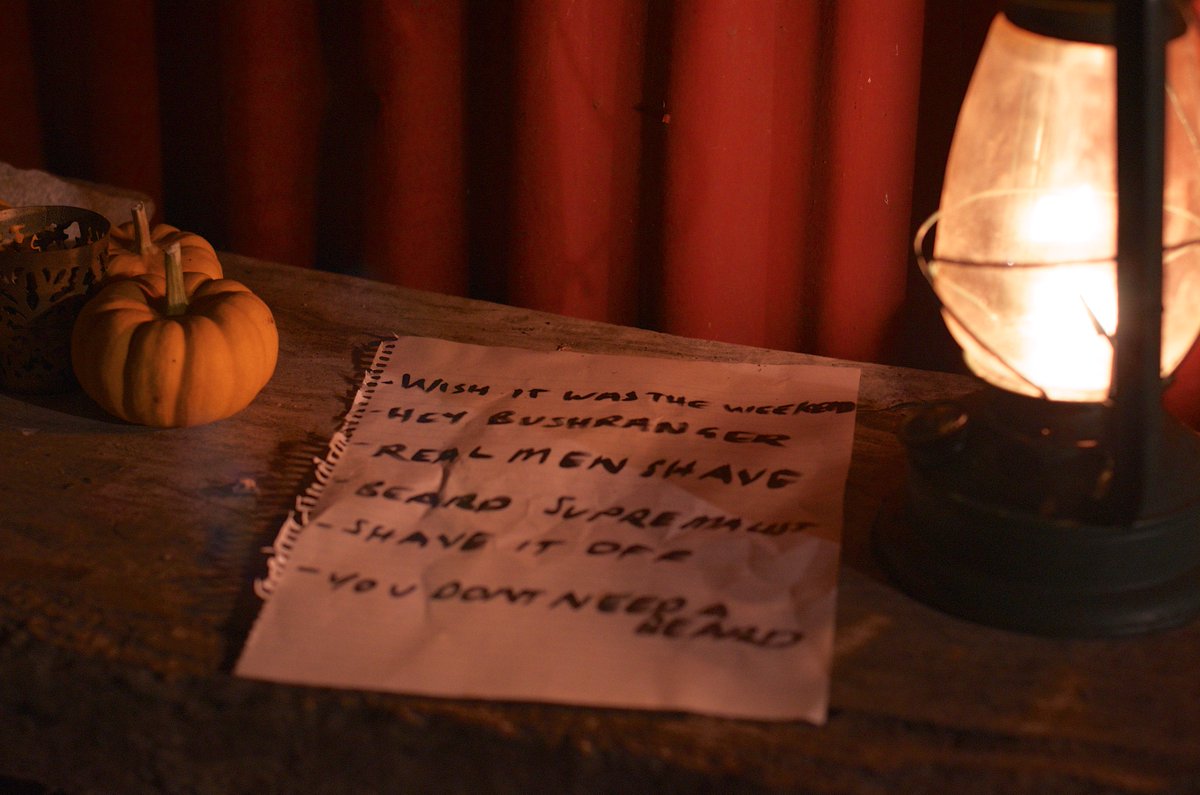 - WISH IT WAS THE WEEKEND
- HEY BUSHRANGER
- REAL MEN SHAVE
- BEARD SUPREMALIST
- SHAVE IT OFF
- YOU DONT NEED A
BEARD